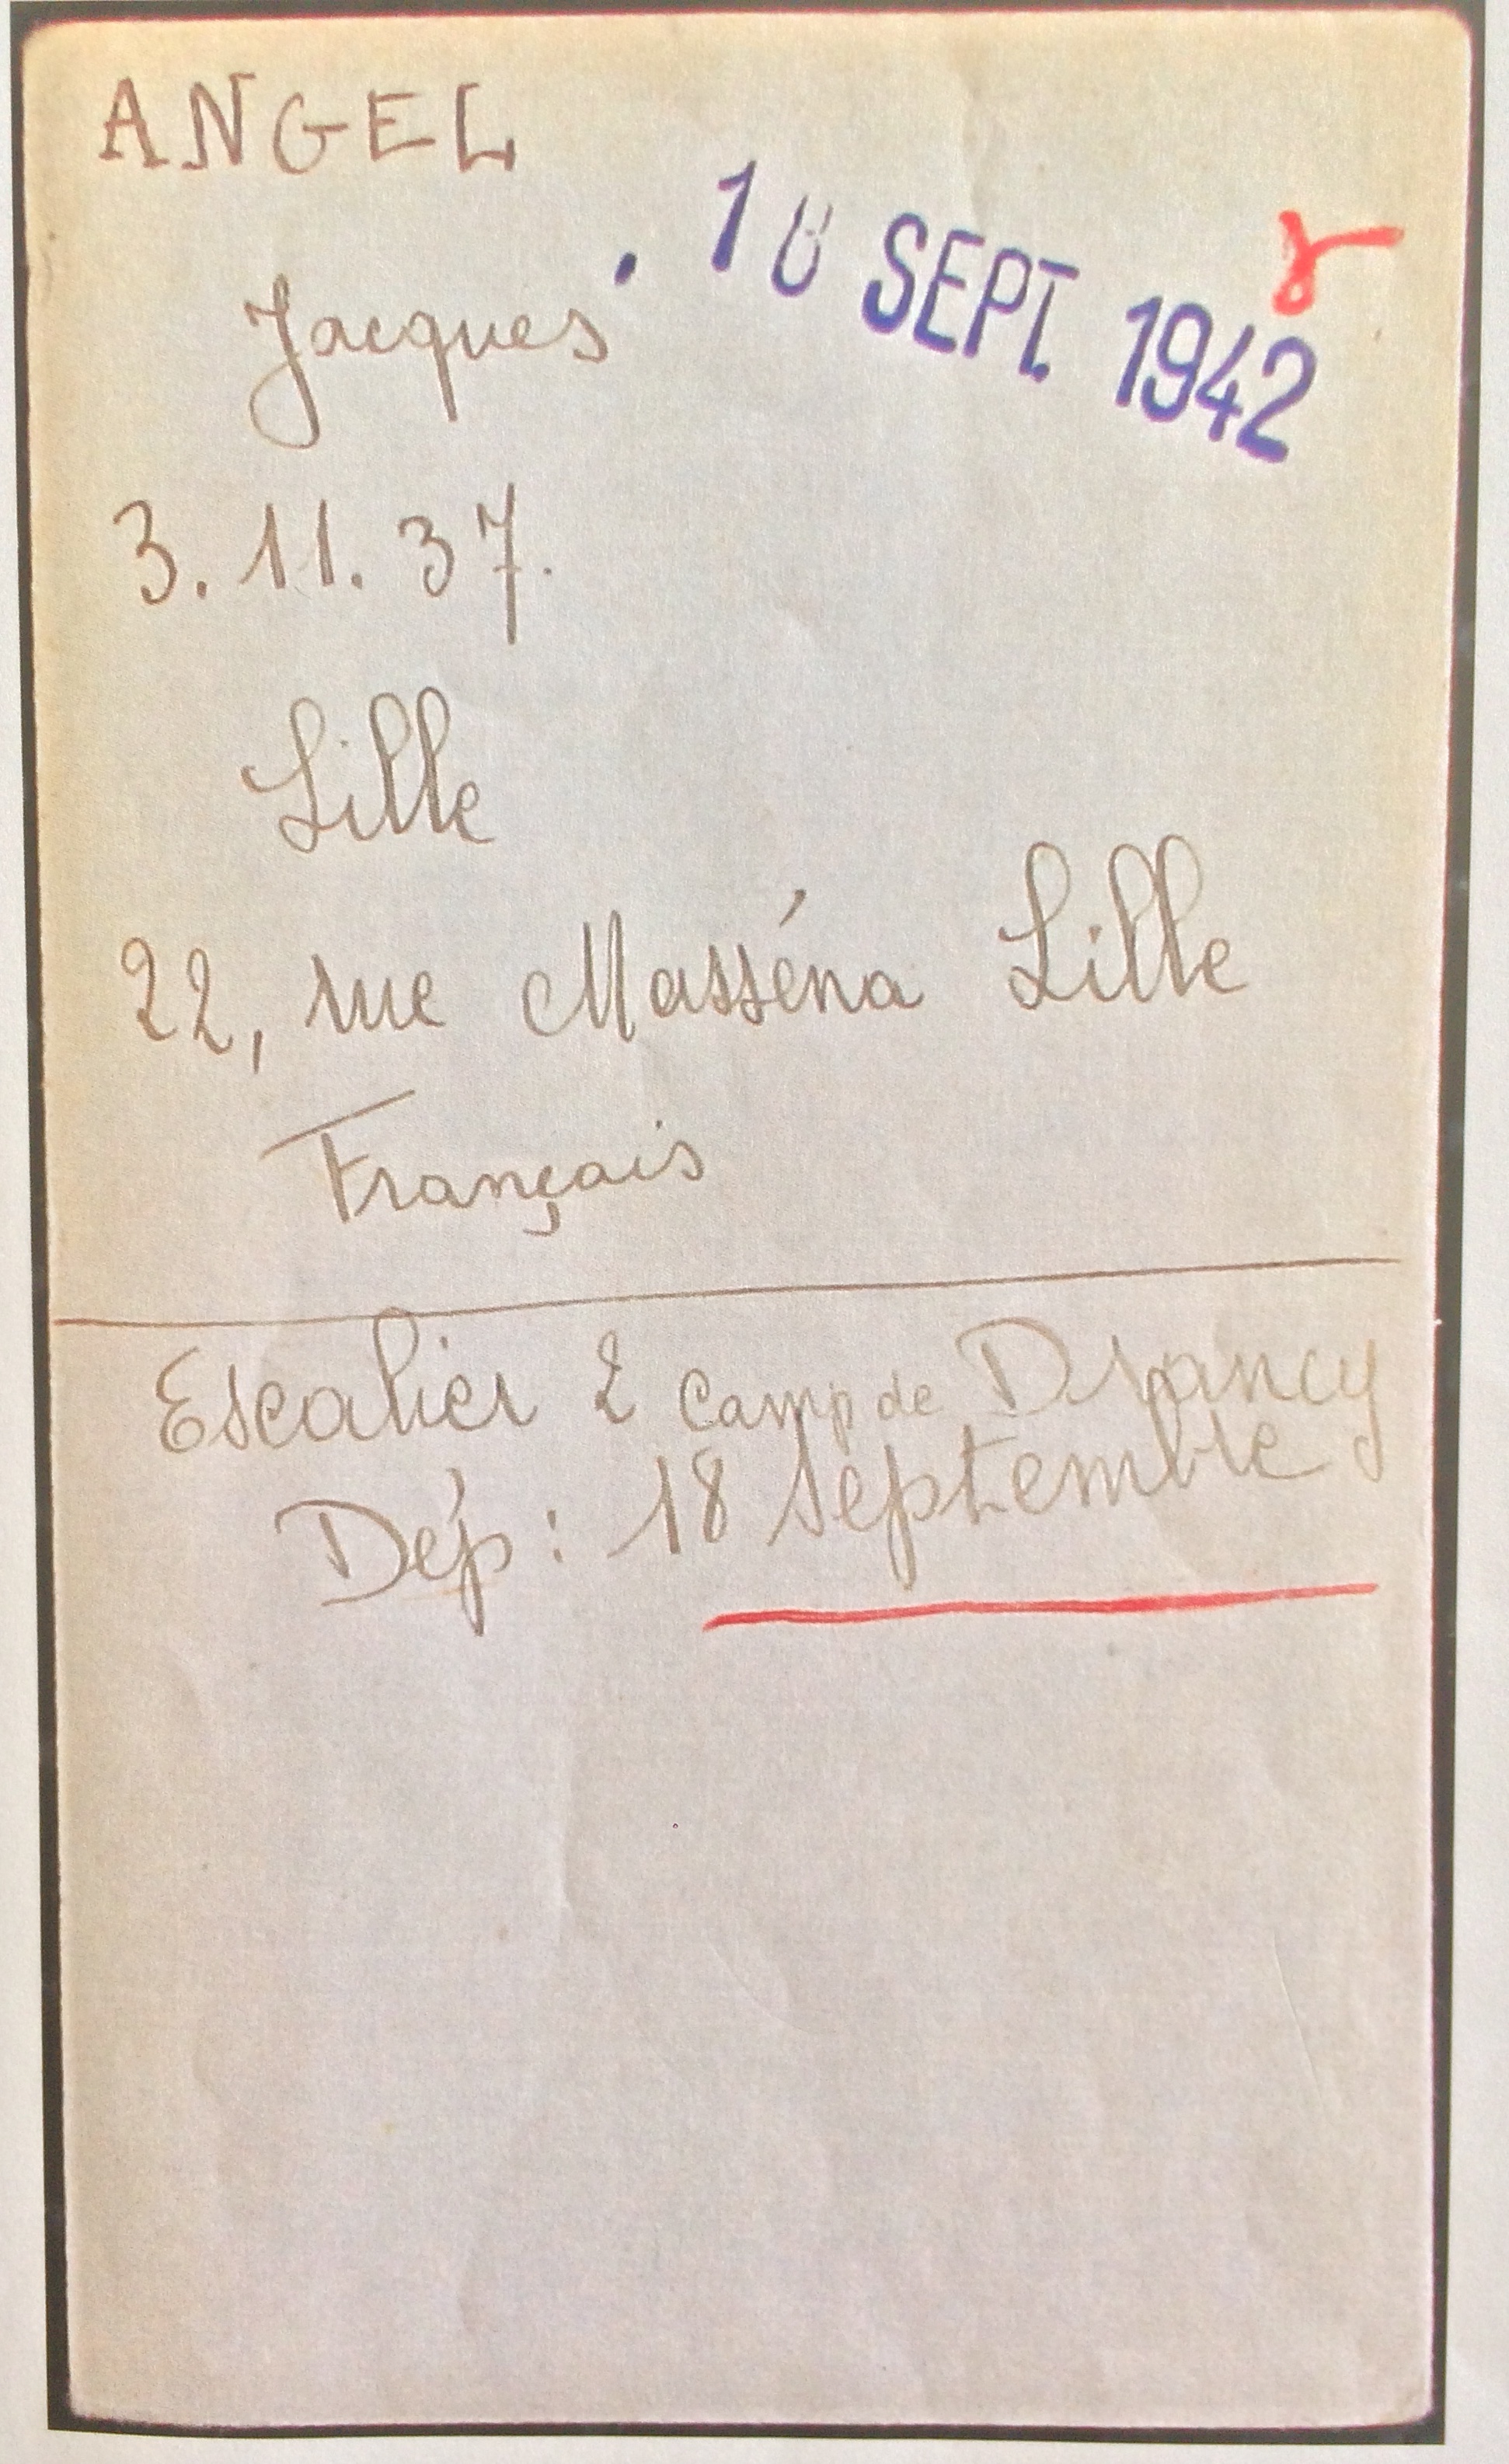 ANGEL
18 SEPT. 1942
Jacques
3.11.37.
Lille
22, rue Masséna Lille
Français
Escalier 2 Camp de Drancy
Dép: 18 Septembre